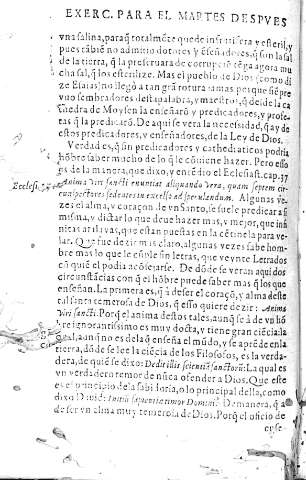 EXERC. PARA EL MARTES DESPVES
vna salina, paraq̃ totalmẽte quede infrutifera y esteril, y
pues tãbiẽ no admitio dotores y ẽseñadores, q̃ son la sal
de la tierra, q̃ la preseruara de corrupciõ tẽga agora mu
cha sal, q̃ los esterilize. Mas el pueblo de Dios (como di
ze Esaias) no llegò a tan grã rotura jamas porque siẽpre
vuo sembradores desta palabra, y maestros, q̃ desde la ca
thedra de Moysen la enseñarõ y predicadores, y profe-
tas q̃ la predicarõ. De aqui se vera la necessidad, q̃ ay de
estos predicadores, y enseñadores, de la Ley de Dios.
Verdad es, q̃ sin predicadores y cathedraticos podria
hõbre saber mucho de lo q̃ le cõuiene hazer. Pero esso
es de la manera, que dixo, y entẽdio el Ecclesiast. cap. 37
Ecclesi. 37
Anima viri sancti enuntiat aliquando vera, quam septem cir-
cunspectores sedentes in excelso ad speculandum. Algunas ve-
zes el alma, y coraçon de vn Santo, le suele predicar a si
misma, y dictar lo que deue hazer mas, y mejor, que
nicas atalayas, que estan puestas en la cẽtinela para ve-
lar. Que fue dezir mas claro, algunas vezes sabe hom-
bre mas lo que le cũple sin letras, que veynte Letrados
cõ quiẽ el podia acõsejarse. De dõde se veran aqui dos
circunstãcias con q̃ el hõbre puede saber mas q̃ los que
enseñan. La primera es, q̃ à de ser el coraçõ, y alma deste
tal santa temerosa de Dios, q̃ esso quiere dezir: Anima
viri sancti. Porq̃ el anima destos tales, aunq̃ sea de vn hõ
bre ignorantissimo es muy docta, y tiene gran ciẽcia: la
qual, aunq̃ no es dela q̃ enseña el mũdo, y se aprẽde en la
tierra, dõde se lee la ciẽcia de los Filosofos, es la verda-
dera, de quiẽ se dixo: Dedit illis scientiã sanctorũ: La qual es
vn verdadero temor de nũca ofender a Dios. Que este
es el principio de la sabidoria, o lo principal della, como
dixo Dauid: Initiũ sapientiæ timor Domini. De manera, q̃ a
de ser vn alma muy temerosa de Dios. Porq̃ el oficio de